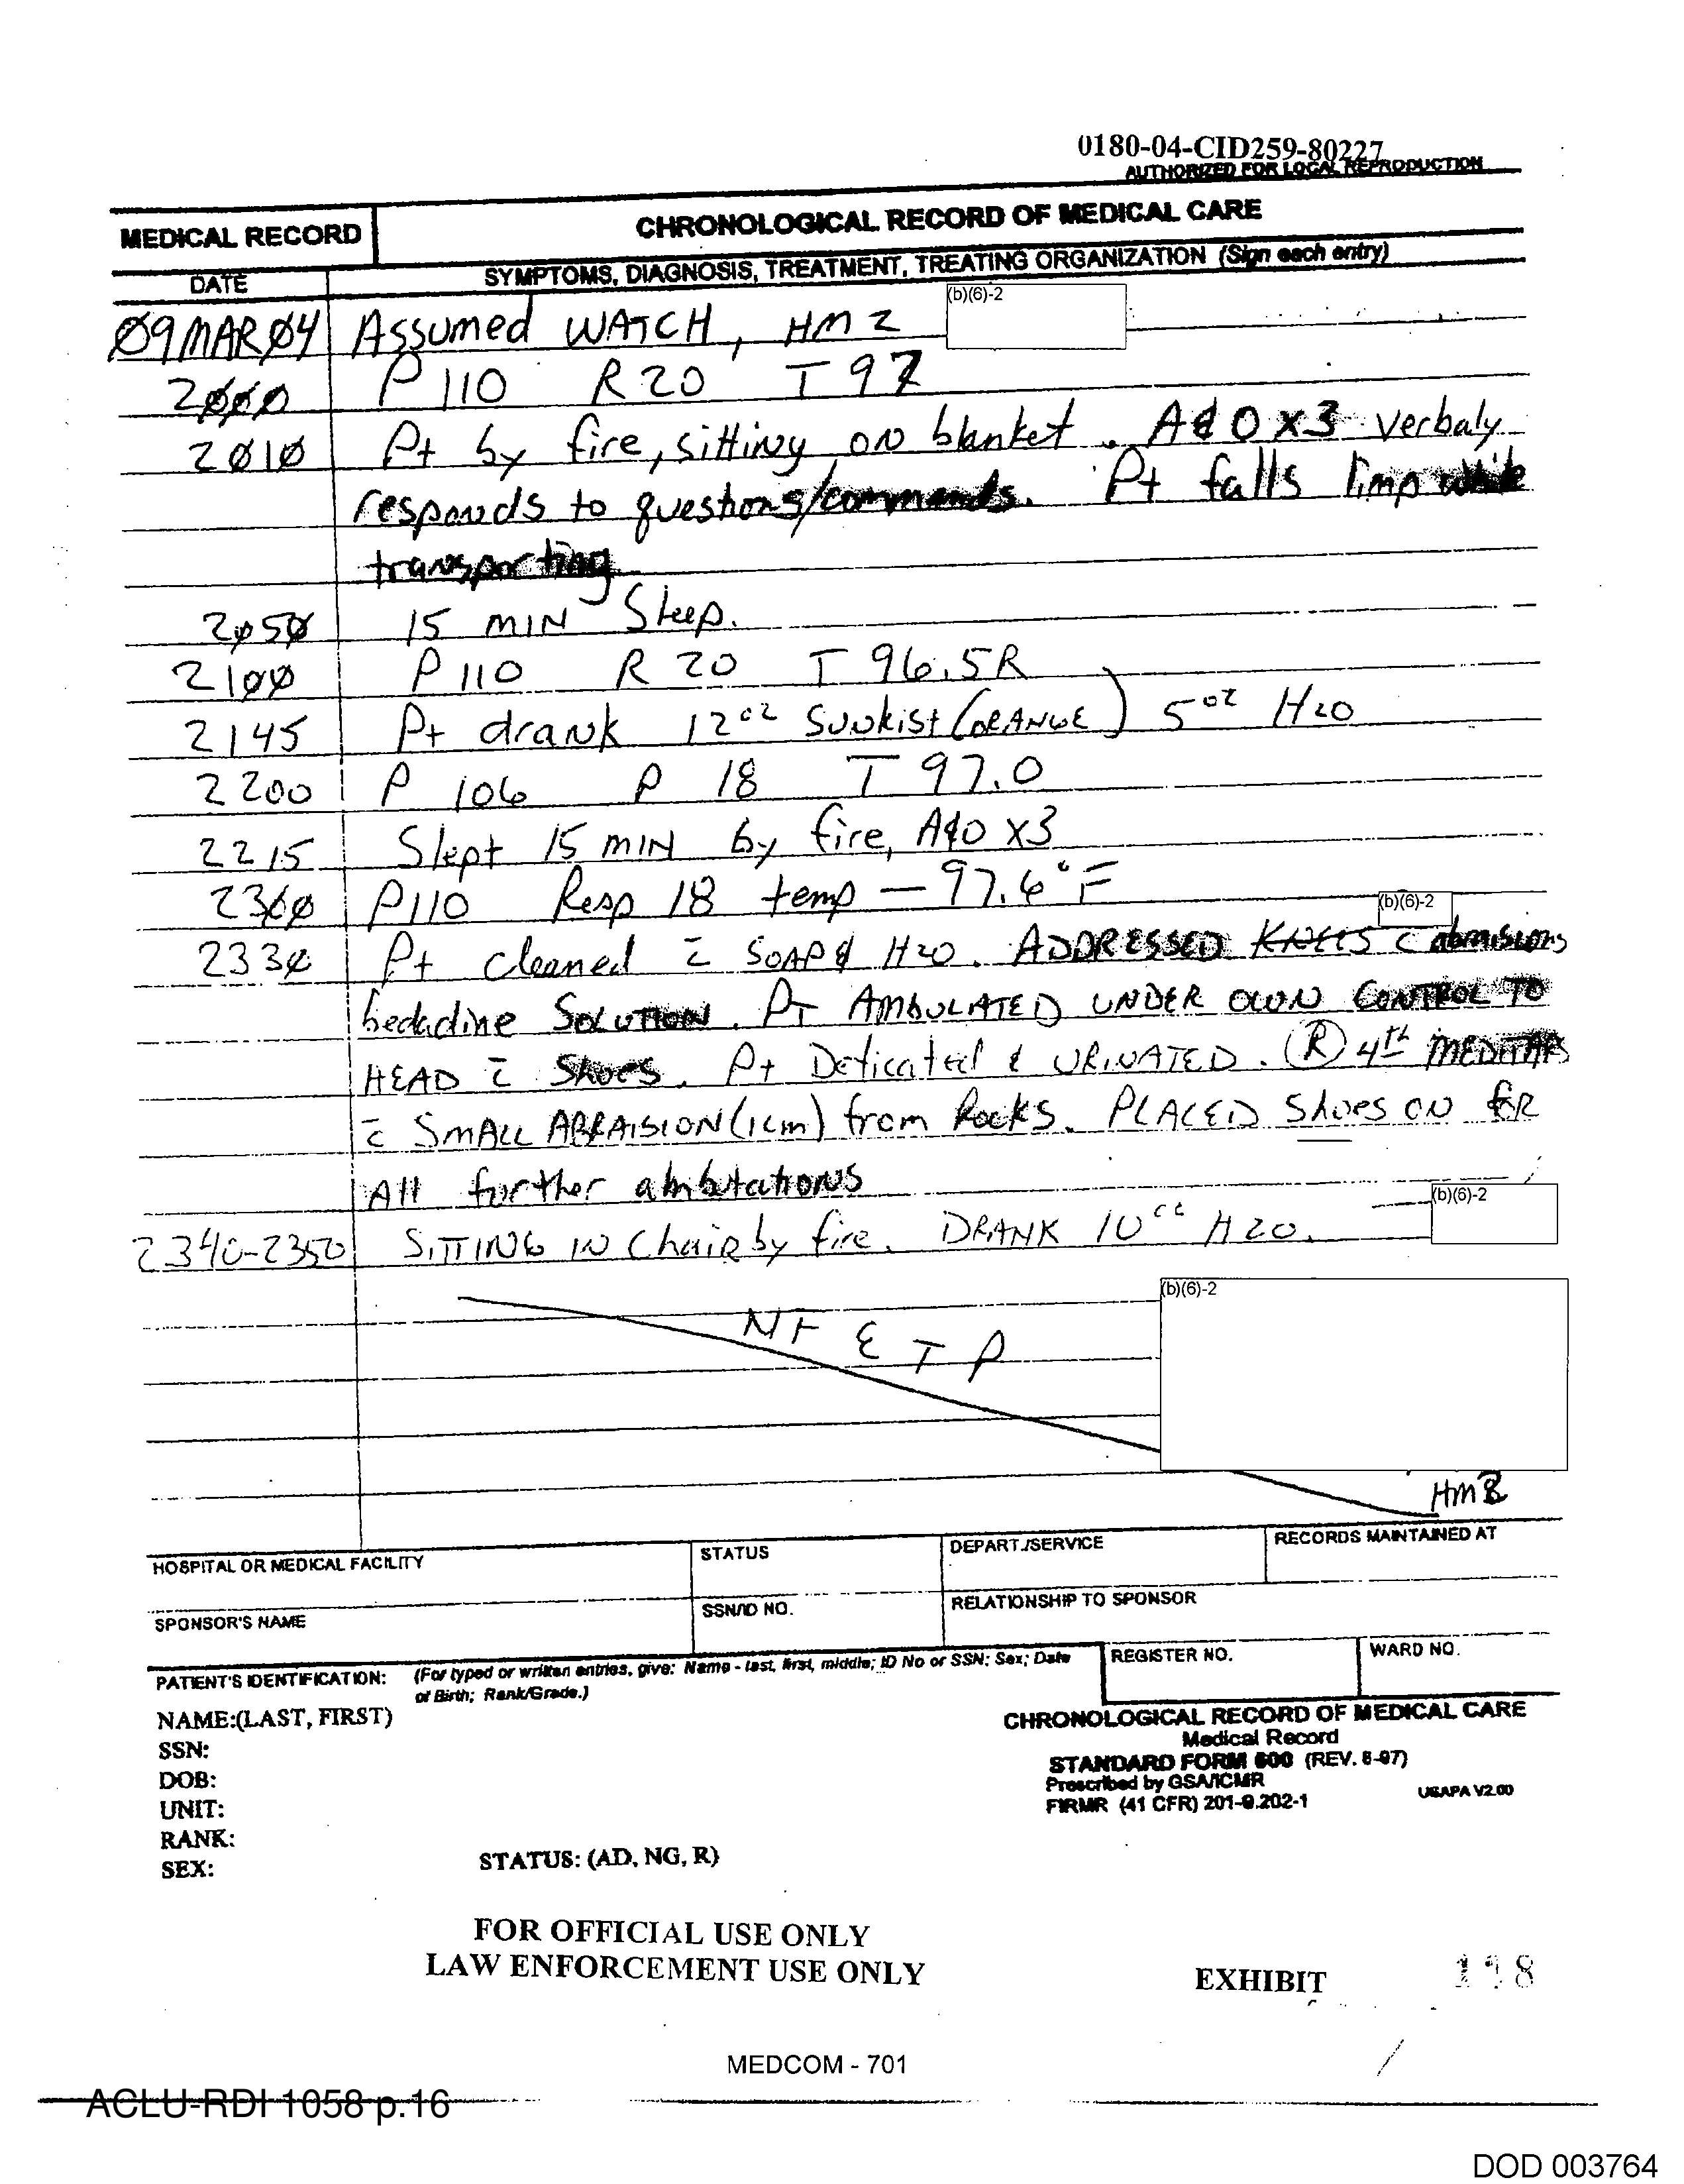 0180-04-CID259-80227
AUTHORIZED FOR LOCAL REPRODUCTION
MEDICAL RECORD
CHRONOLOGICAL RECORD OF MEDICAL CARE
DATE
SYMPTOMS, DIAGNOSIS, TREATMENT, TREATING ORGANIZATION (Sign each entry)
09MAR04 Assumed WATCH, HM2 (b)(6)-2
2000 P 110 R 20 T 97
2010 Pt by fire, sitting on blanket. A&O x3 verbaly
responds to questions/commands. Pt falls limp while
transporting
2050 15 MIN Sleep.
2100 P 110 R 20 T 96.5R
2145 Pt drank 12oz Sunkist (ORANGE) 5oz H2O
2200 P 106 R 18 T 97.0
2215 Slept 15 MIN by fire, A&O x3
2300 P110 Resp 18 temp — 97.6°F (b)(6)-2
2330 Pt cleaned c̄ SOAP & H2O. ADDRESSED KNEES c̄
bedadine SOLUTION. PT AMBULATED UNDER OWN CONTROL TO
HEAD c̄ Shoes. Pt Deficated & URINATED. (R) 4th
c̄ SMALL ABRAISION (1cm) from Rocks. PLACED Shoes ON foR
All further
2340-2350 SITTING IN Chair by fire. DRANK 10cc H2O.
(b)(6)-2
(b)(6)-2
HM3
HOSPITAL OR MEDICAL FACILITY
STATUS
DEPART./SERVICE
RECORDS MAINTAINED AT
SPONSOR'S NAME
SSN/ID NO.
RELATIONSHIP TO SPONSOR
PATIENT'S IDENTIFICATION: (For typed or written entries, give: Name - last, first, middle; ID No or SSN; Sex; Date
of Birth; Rank/Grade.)
REGISTER NO.
WARD NO.
NAME:(LAST, FIRST)
SSN:
DOB:
UNIT:
RANK:
SEX:
STATUS: (AD, NG, R)
CHRONOLOGICAL RECORD OF MEDICAL CARE
Medical Record
STANDARD FORM 600 (REV. 6-97)
Prescribed by GSA/ICMR
FIRMR (41 CFR) 201-9.202-1
USAPA V2.00
FOR OFFICIAL USE ONLY
LAW ENFORCEMENT USE ONLY
EXHIBIT
MEDCOM - 701
ACLU-RDI 1058 p.16
DOD 003764